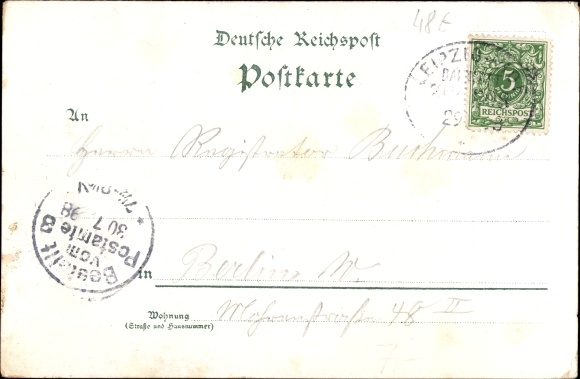 48 E
Deutsche Reichspost
Postkarte
LEIPZIG
29
5
REICHSPOST
An
Herrn Registrator Buchmann
Bestellt
vom
Postamte 3
30 7 98
7½-8½N
in Berlin W.
Wohnung
(Straße und Hausnummer)
Mohrenstraße 48 II
7